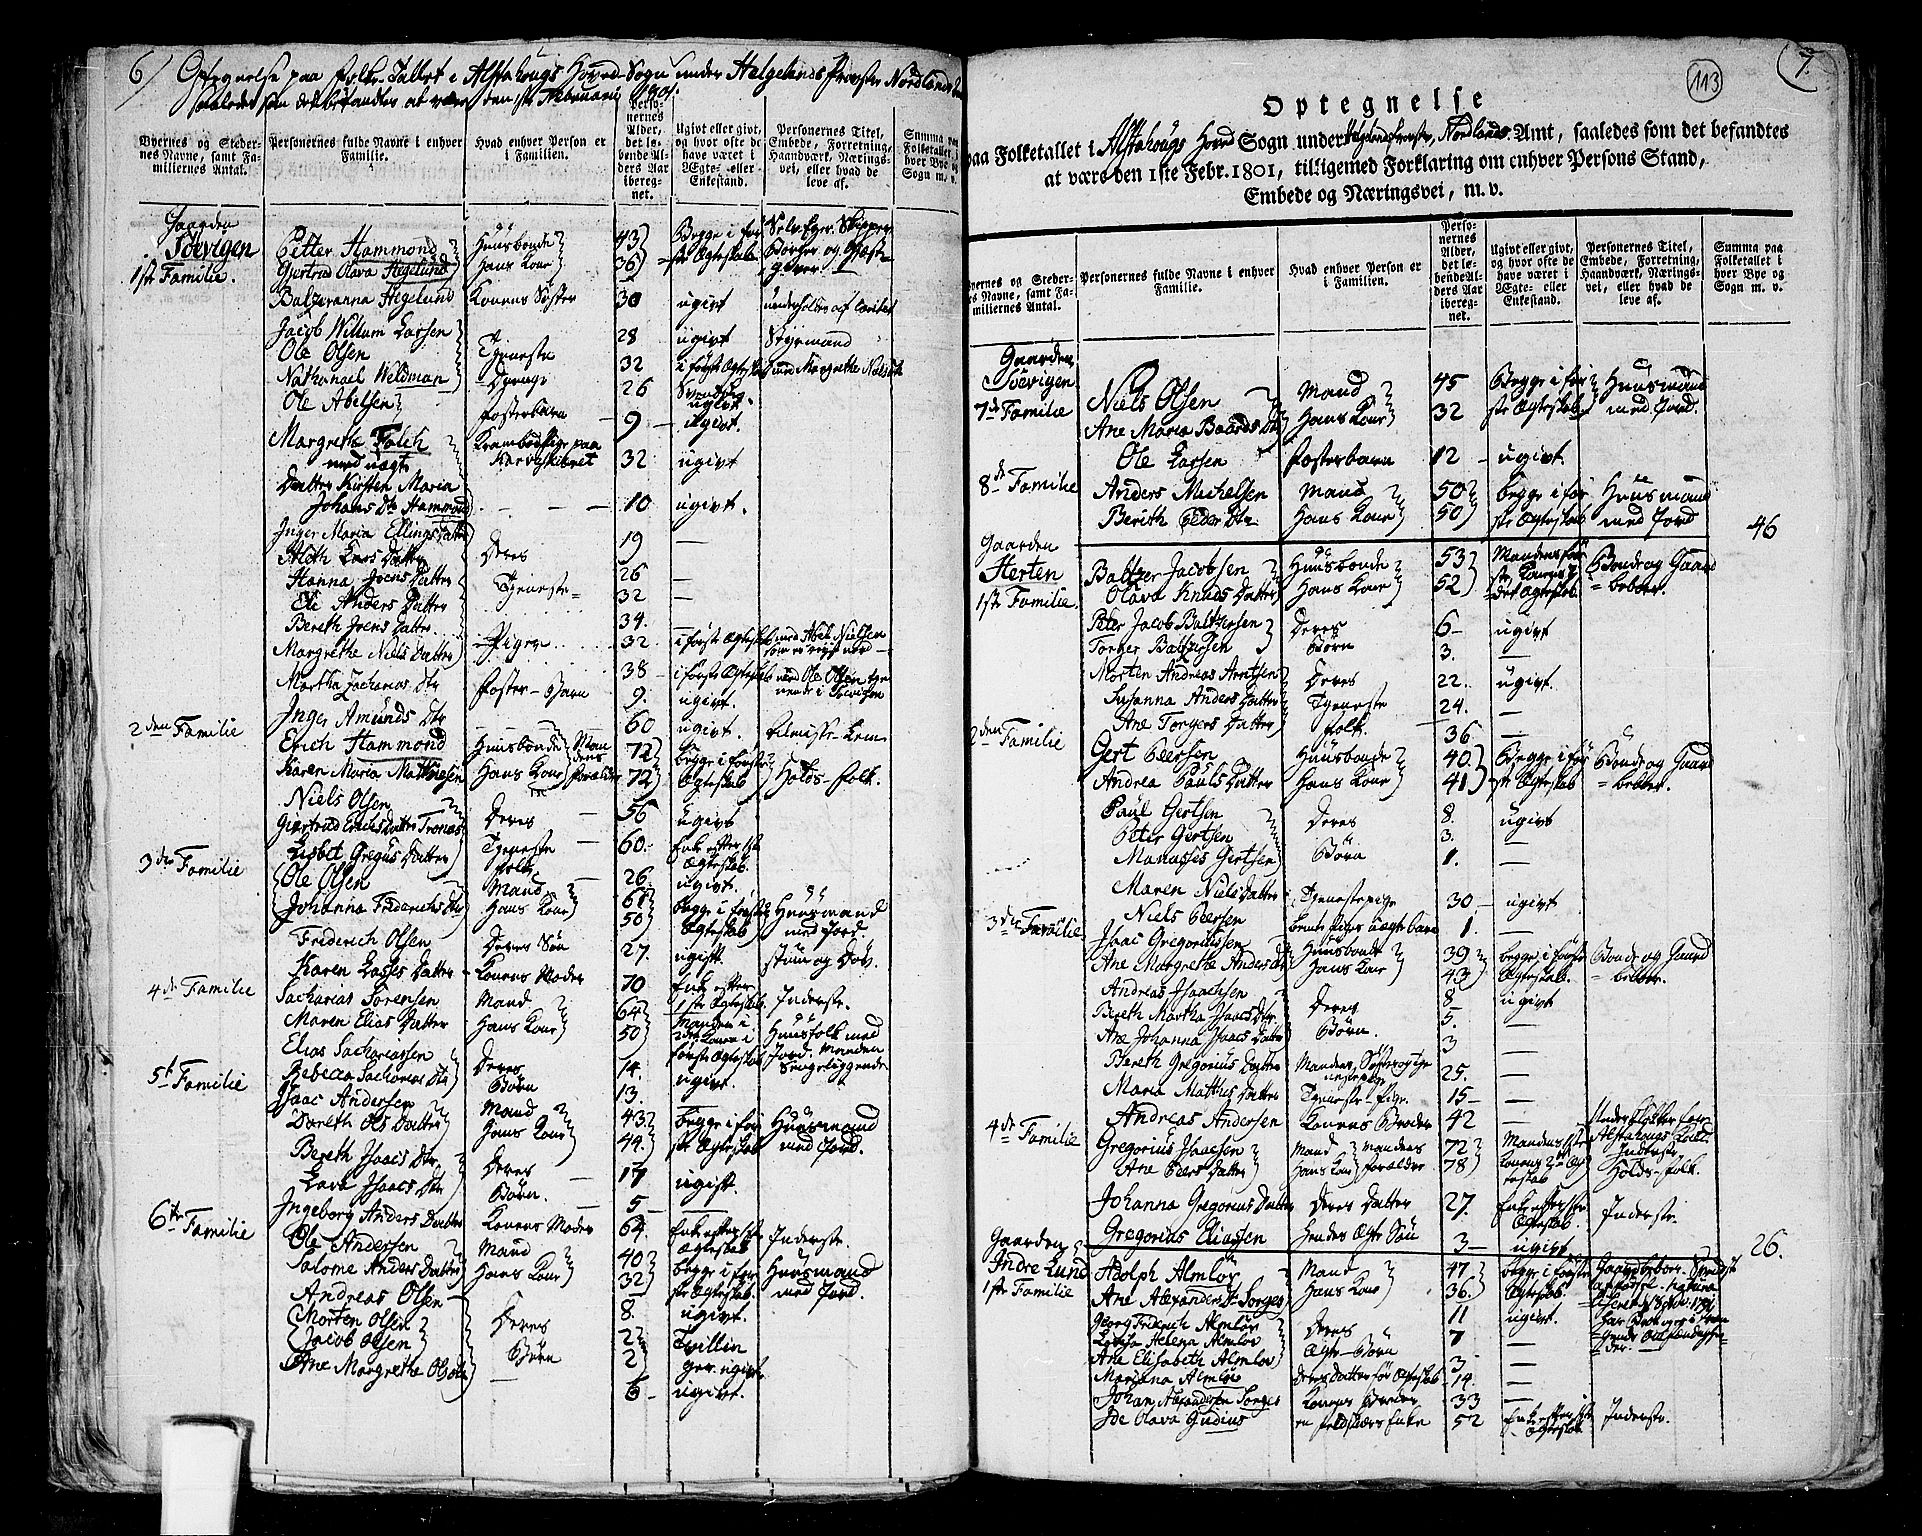 6/ Optegnelse paa Folke-Tallet i Alstahougs Hoved-Sogn under Helgelands Provstie Nordlands
saaledes som det befandtes at være den 1ste Februarii 1801.
Byernes og Stedernes Navne, samt Familiernes Antal.
Personernes fulde Navne i enhver Familie.
Hvad enhver Person er i Familien.
Personernes Alder, det lebende Alders Aar iberegnet.
Ugivt eller givt, og hvor ofte de have været i Ægte- eller Enkestand.
Personernes Titel, Embede, Forretning, Haandværk, Næringsvei, eller hvad de leve af.
Gaarden
Søevigen
1ste Familie.
Petter Hammond Huusbonde 43 Begge i før- Selv-Eyer. Skipper
Giertrud Olava Hegelund Hans Kone 36 ste Ægteskab Borger og Giæst-
Balzeranna Hegelund Konens Søster 30 ugivt
Jacob Willum Larsen 28 ugivt Styrmand
Ole Olsen Tjeneste 32 i første Ægteskab med Margrethe
Nathanael Weldman Drenge 26 ugivt.
Ole Abelsen Fosterbarn 9 ugivt.
Margrethe Falch 32 ugivt
med uægte
Datter Kirsten Maria
Johans Dtr Hammond 10 ugivt.
Inger Maria Ellings Datter 19 —
Aleth Lars Datter Deres 26 —
Hanna Joens Datter Tjeneste- 32 —
Ele Anders Datter 34.
Bereth Joens Datter Piger 32 i første Ægteskab med Abel Nielsen
Margrethe Niels Datter 38 i første Ægteskab med Ole Olsen
Martha Zacharias Dtr Foster-Barn 9. ugivt.
Inger Amunds Dtr 60 ugivt.
2den Familie
Erich Hammond Huusbonde 72 begge i første
Karen Maria Mathiesen Hans Kone 72 Ægteskab Holds-folk.
Niels Olsen Deres 56 ugivt
Giertrud Erichs Datter Tronæs Tjeneste 60. Enke efter 1ste Ægteskab.
Lisbet Gregus Datter folk 26 ugivt.
3die Familie
Ole Olsen Mand 61 begge i første Huusmand
Johanna Frederichs Dtr Hans Kone 50 Ægteskab med Jord.
Friderich Olsen Deres Søn 27. ugift. stum og Døv.
Karen Lasses Datter Konens Moder 70 Enke efter 1ste Ægteskab. Inderste.
4de Familie
Sacharias Sørensen Mand 64 Manden i Huusfolk med
Maren Elias Datter Hans Kone 50 første Ægteskab Jord. Manden Sengeliggende
Elias Sachariassen Deres 14.
Rebecca Sacharias Dtr Børn 13. ugivt.
5te Familie
Isaac Andersen Mand 43. begge i før- Huusmand
Doreth Ols Datter Hans Kone 44. ste Ægteskab med Jord.
Bereth Isaacs Dtr Deres 17
Lava Isaacs Dtr Børn. 5 ugift.
Ingeborg Anders Datter Konens Moder 64. Enke efter 1ste Ægteskab Inderste.
6te Familie
Ole Andersen Mand 40 begge i før- Huusmand
Salome Anders Datter Hans Kone 32 ste Ægteskab med Jord.
Andreas Olsen 8. ugivt.
Morten Olsen Deres 2 Tvillin
Jacob Olsen Børn 2 ger ugivt.
Ane Margrethe Ols Dtr — 6 ugivt.
7.
113
Optegnelse
paa Folketallet i Alstahougs Hoved Sogn under Helgelands Provstie, Nordlands Amt, saaledes som det befandtes
at være den 1ste Febr. 1801, tilligemed Forklaring om enhver Persons Stand,
Embede og Næringsvei, m. v.
Byernes og Stedernes Navne, samt Familiernes Antal.
Personernes fulde Navne i enhver Familie.
Hvad enhver Person er i Familien.
Personernes Alder, det lebende Alders Aar iberegnet.
Ugivt eller givt, og hvor ofte de have været i Ægte- eller Enkestand.
Personernes Titel, Embede, Forretning, Haandværk, Næringsvei, eller hvad de leve af.
Summa paa Folketallet i hver Bye og Sogn m. v.
Gaarden
Søevigen
7de Familie
Niels Olsen Mand 45 Begge i før- Huusmand
Ane Maria Baards Dtr Hans Kone 32 ste Ægteskab med Jord.
Ole Larsen Fosterbarn 12 ugivt.
8de Familie
Anders Michelsen Mand 50 begge i før- Huusmand
Berith Peder Dtr Hans Kone 50 ste Ægteskab med Jord
46
Gaarden
Sterten
1ste Familie.
Baltzer Jacobsen Huusbonde 53 Mandens før- Bonde og Gaard
Olava Knuds Datter Hans Kone 52 ste Konens 2det Ægteskab beboer.
Peter Jacob Baltzersen Deres 6 ugivt
Torger Baltzersen Børn 3. —
Morten Andreas Arntsen Deres 22. ugivt.
Susanna Anders Datter Tjeneste 24. —
Ane Torgers Datter folk. 36 —
2den Familie
Gert Peersen Huusbonde 40. Begge i før- Bonde og Gaard
Andrea Pauls Datter Hans Kone 41 ste Ægteskab beboer.
Paul Gertsen Deres 8. ugivt
Peter Gertsen 3. —
Manasses Gertsen Børn 1. —
Maren Niels Datter Tjenestepige 30 ugivt
Niels Peersen bemte Piges uægte barn 1. —
3die Familie
Isaac Gregoriussen Huusbonde 39 begge i første Bonde og Gaard
Ane Margrethe Anders Dtr Hans Kone 43 Ægteskab. beboer.
Andreas Isaachsen Deres 8 ugivt
Bereth Martha Isaacs Dtr 5. —
Ane Johanna Isaacs Datter Børn. 3 —
Bereth Gregorius Datter Mandens Søster og Tjenestepige 25. —
Maria Mathis Datter Tjeneste-Pige. 15 —
Andreas Andersen Konens Broder 42 —
4de Familie
Gregorius Isaacsen Mand mandens 72 Mandens 1ste Inderste
Ane Peers Datter Hans Kone forældre 78 Konens 2det Ægteskab Holds-folk.
Johanna Gregorius Datter Deres Datter 27. Enke efter 1ste Ægteskab. Inderste.
Gregorius Eliassen Hendes Ægte Søn 3 ugivt
26.
Gaarden
Indre Lund
1ste Familie
Adolph Almlov Mand 47 begge i første
Ane Alexanders Dr Sorges Hans Kone 36. Ægteskab.
Georg Friderich Almlöv 11 ugivt.
Lovisa Helena Almlov Deres 7 —
Ane Elisabeth Almlov Ægte-Børn 3 —
Mariana Almlöv Deres Datter før Ægteskab 14. —
Johan Alexandersen Sorges Konens Broder 33 —
Ide Olava Gudius en feldskiærs Enke 52 Enke efter 1ste Ægteskab Inderste.